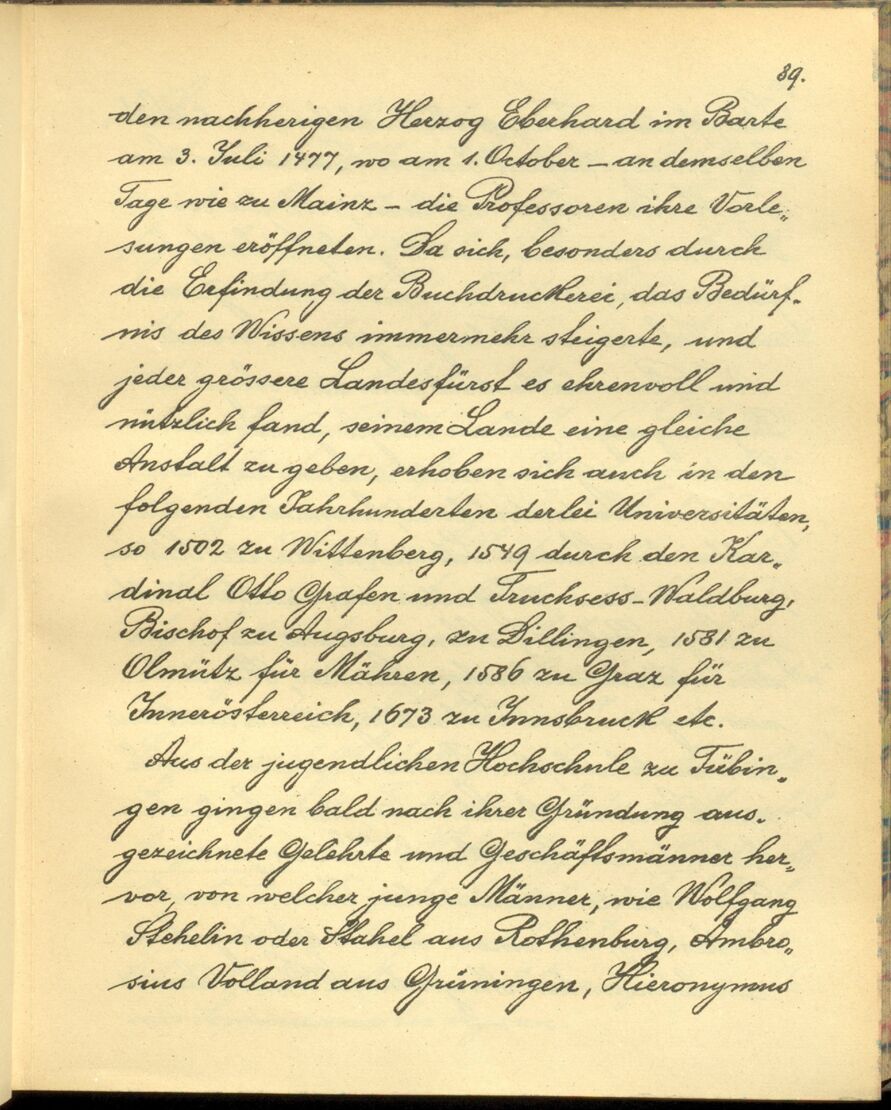 89.
den nachherigen Herzog Eberhard im Barte
am 3. Juli 1477, wo am 1. October – an demselben
Tage wie zu Mainz – die Professoren ihre Vorle„
sungen eröffneten. Da sich, besonders durch
die Erfindung der Buchdruckerei, das Bedürf„
nis des Wissens immermehr steigerte, und
jeder grössere Landesfürst es ehrenvoll und
nützlich fand, seinem Lande eine gleiche
Anstalt zu geben, erhoben sich auch in den
folgenden Jahrhunderten derlei Universitäten,
so 1502 zu Wittenberg, 1549 durch den Kar„
dinal Otto Grafen und Truchsess-Waldburg,
Bischof zu Augsburg, zu Dillingen, 1581 zu
Olmütz für Mähren, 1586 zu Graz für
Innerösterreich, 1673 zu Innsbruck etc.
Aus der jugendlichen Hochschule zu Tübin„
gen gingen bald nach ihrer Gründung aus„
gezeichnete Gelehrte und Geschäftsmänner her„
vor, von welcher junge Männer, wie Wolfgang
Stehelin oder Stahel aus Rothenburg, Ambro„
sius Volland aus Grüningen, Hieronymus